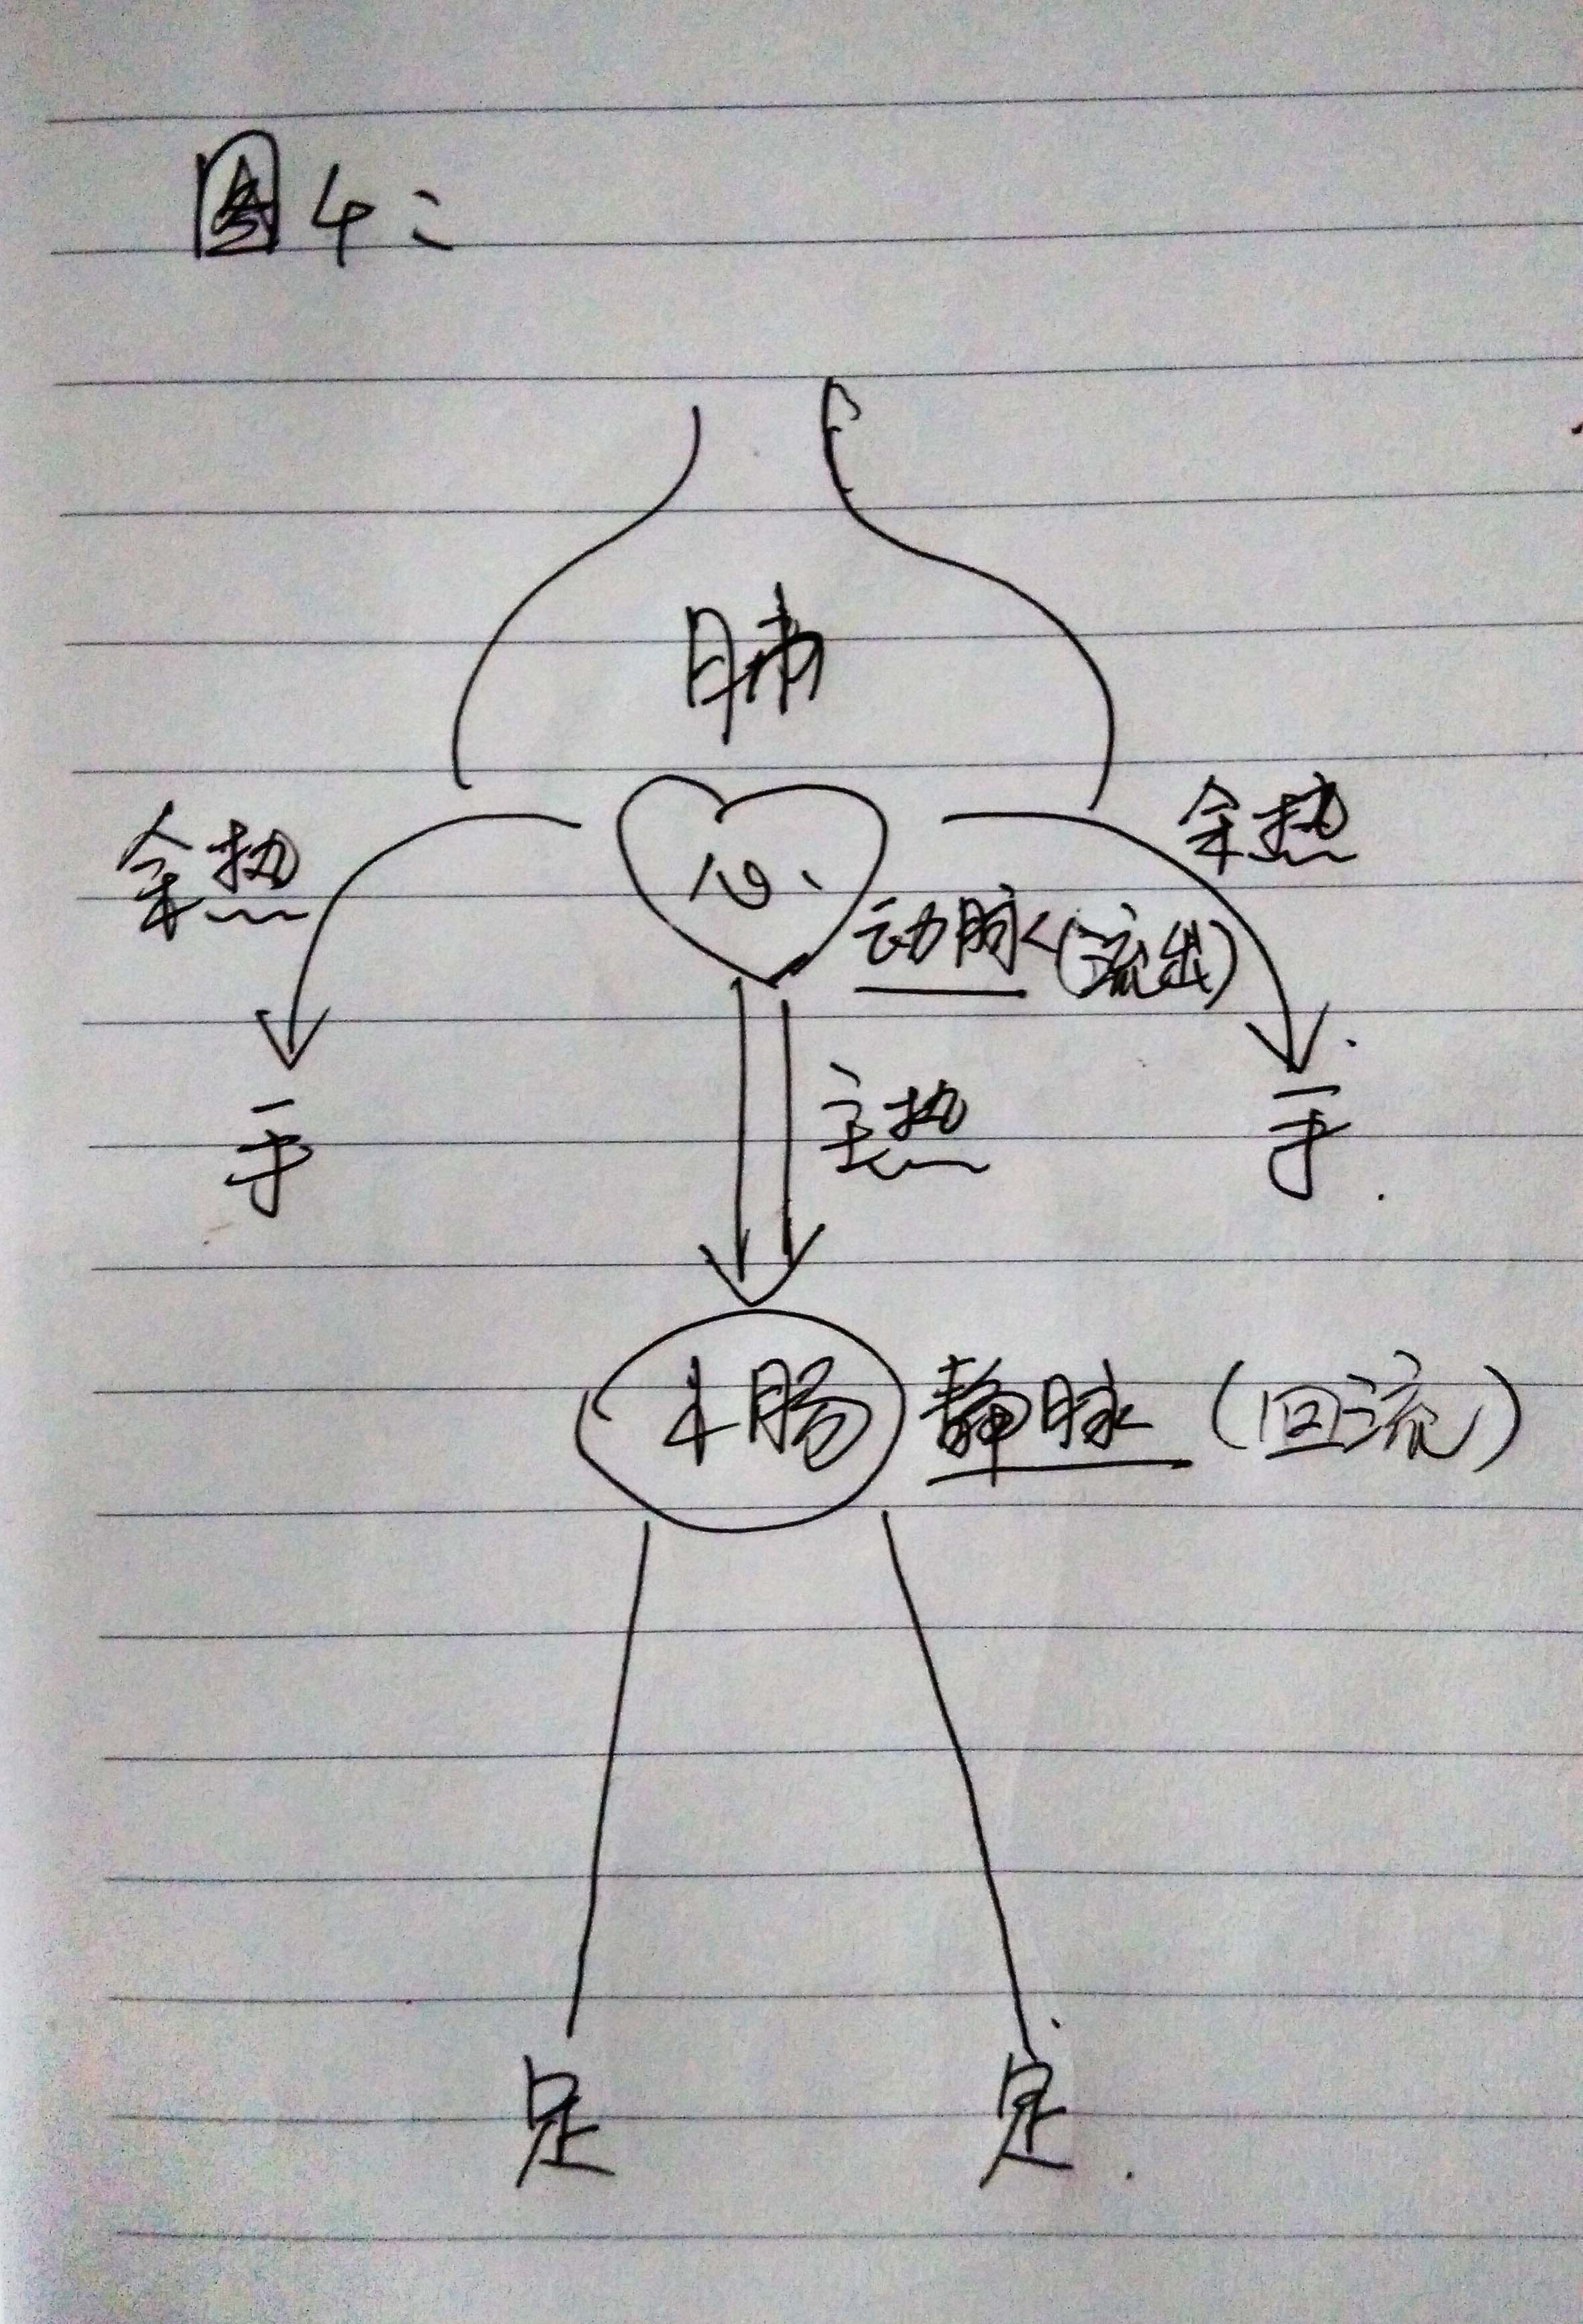 图4：
肺
余热
余热
心
动脉(流出)
手
主热
手
小肠
静脉(回流)
足
足